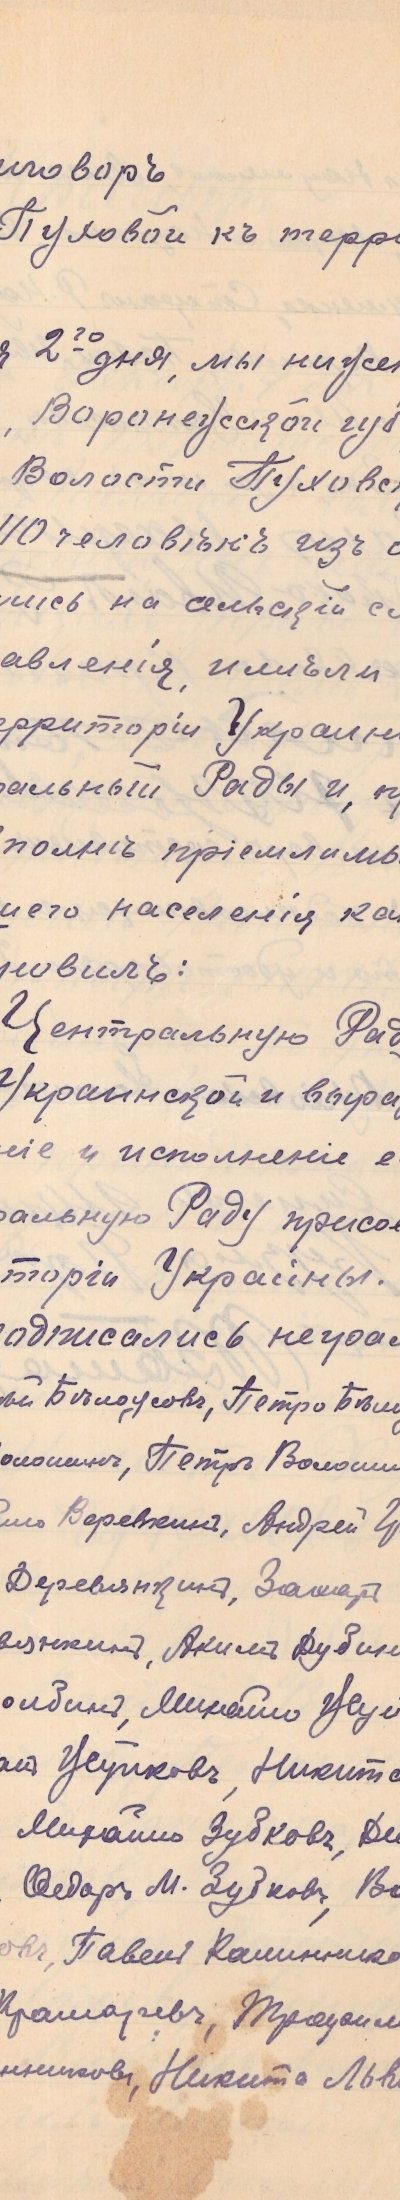 иговоръ
Пуховой къ терри
я 2го дня, мы нижеп
, Воронежской губ
Волости Пуховск
110 человѣкъ изъ о
лись на сельскій с
авленія, имѣли
ерриторіи Украин
ральный Рады и, пр
вполнѣ пріемлимы
шего населенія ка
новилъ:
Центральную Рад
Украинской и выра
ніе и исполненіе е
ральную Раду присое
торіи Украины.
подписались неграм
Бѣлоусовъ, Петро Бѣло
Волошинъ, Петръ Волоши
Веревкинъ, Андрей
Деревянкинъ, Захаръ
вянкинъ, Акимъ Дубин
олбинъ, Михайло Жуй
Жуйковъ, Никита
Михайло Зубковъ, Ди
Федоръ М. Зубковъ, Ва
овъ, Павелъ Калиннико
Крамаревъ, Трофим
нниковъ, Никита Льв